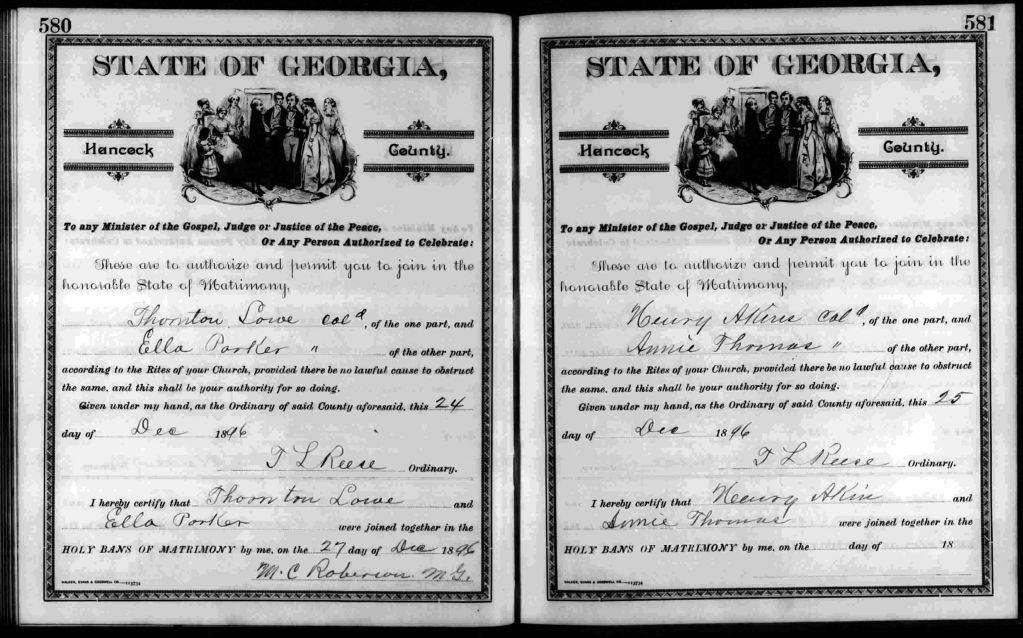 580
STATE OF GEORGIA,
Hancock County.
To any Minister of the Gospel, Judge or Justice of the Peace,
Or Any Person Authorized to Celebrate:
These are to authorize and permit you to join in the
honorable State of Matrimony,
Thornton Lowe cold, of the one part, and
Ella Parker " of the other part,
according to the Rites of your Church, provided there be no lawful cause to obstruct
the same, and this shall be your authority for so doing.
Given under my hand, as the Ordinary of said County aforesaid, this 24
day of Dec 1896
T L Reese Ordinary.
I hereby certify that Thornton Lowe and
Ella Parker were joined together in the
HOLY BANS OF MATRIMONY by me, on the 27 day of Dec 1896
M. C Roberson M.G.
581
STATE OF GEORGIA,
Hancock County.
To any Minister of the Gospel, Judge or Justice of the Peace,
Or Any Person Authorized to Celebrate:
These are to authorize and permit you to join in the
honorable State of Matrimony,
Henry Akins cold, of the one part, and
Annie Thomas " of the other part,
according to the Rites of your Church, provided there be no lawful cause to obstruct
the same, and this shall be your authority for so doing.
Given under my hand, as the Ordinary of said County aforesaid, this 25
day of Dec 1896
T L Reese Ordinary.
I hereby certify that Henry Akin and
Annie Thomas were joined together in the
HOLY BANS OF MATRIMONY by me, on the day of 18